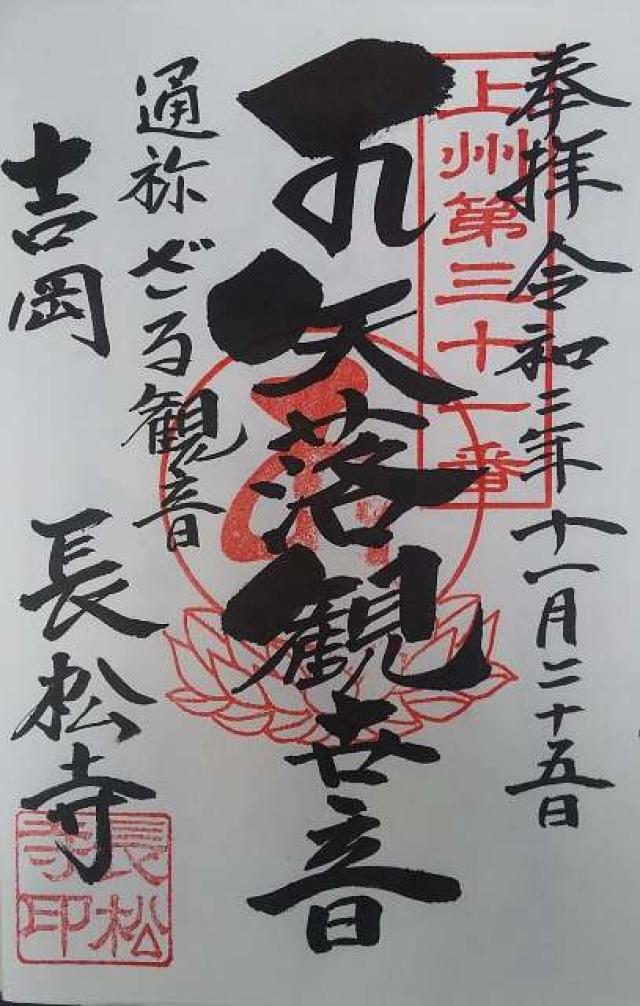 奉拝 令和三年十一月二十五日
上州第三十一番
矢落観世音
通祢ざる観音
吉岡 長松寺
長松寺印